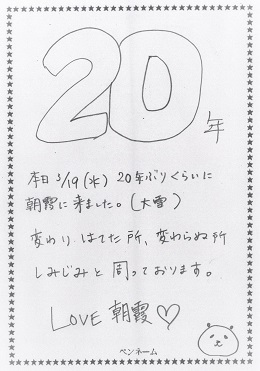 20
年
本日 3/19(水) 20年ぶりくらいに
朝霞に来ました。(大雪)
変わりはてた所、変わらぬ所
しみじみと周っております。
LOVE 朝霞♡
ペンネーム